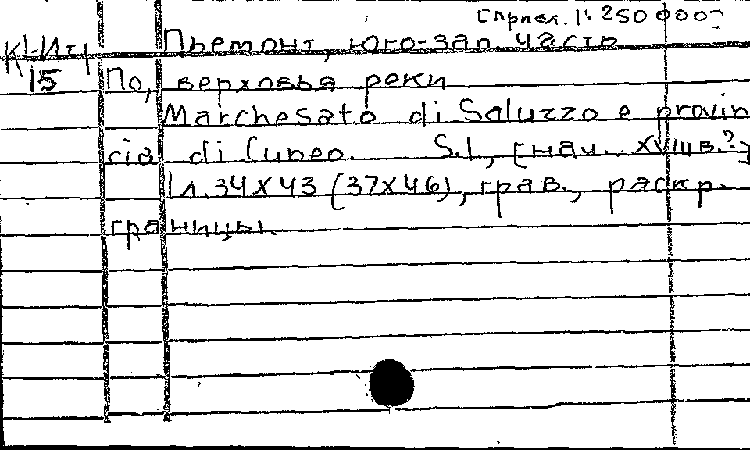 [прибл. 1:250000]
К1-Ит Пьемонт, юго-зап. часть
15 По, верховья реки
Marchesato di Saluzzo e provin
cia di Cuneo. S.l., [нач. XVIII в.?]
1 л. 34x43 (37x46), грав., раскр.
границы.